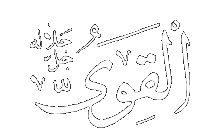 القوي
جل جلاله